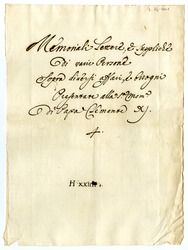 Memoriali Lettere, e Suppliche
Di varie Persone
Sopra diversi affari, e bisogni
Presentate alla
Di Papa Clemente XI.
4.
H xxiii